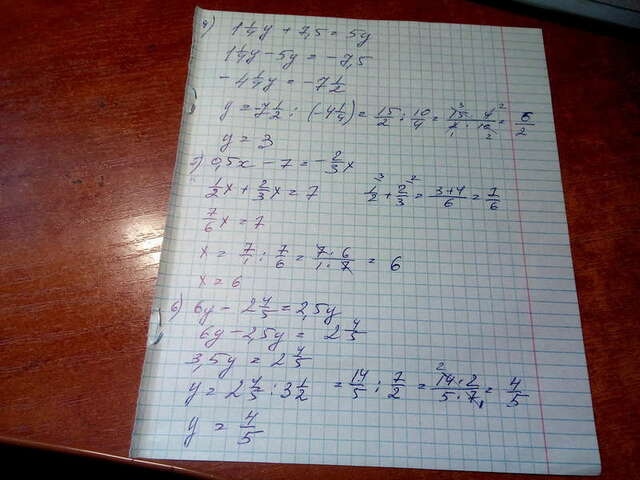 4) 1 1/4 y + 7,5 = 5y
1 1/4 y - 5y = -7,5
-4 1/4 y = -7 1/2
y = -7 1/2 : (-4 1/4) = 15/2 : 10/4 = 15 · 4 / 2 · 10 = 6/2
y = 3
5) 0,5x - 7 = -2/3 x
1/2 x + 2/3 x = 7 1/2 + 2/3 = 3+4/6 = 7/6
7/6 x = 7
x = 7/1 : 7/6 = 7 · 6 / 1 · 7 = 6
x = 6
6) 6y - 2 4/5 = 2,5y
6y - 2,5y = 2 4/5
3,5y = 2 4/5
y = 2 4/5 : 3 1/2 = 14/5 : 7/2 = 14 · 2 / 5 · 7 = 4/5
y = 4/5